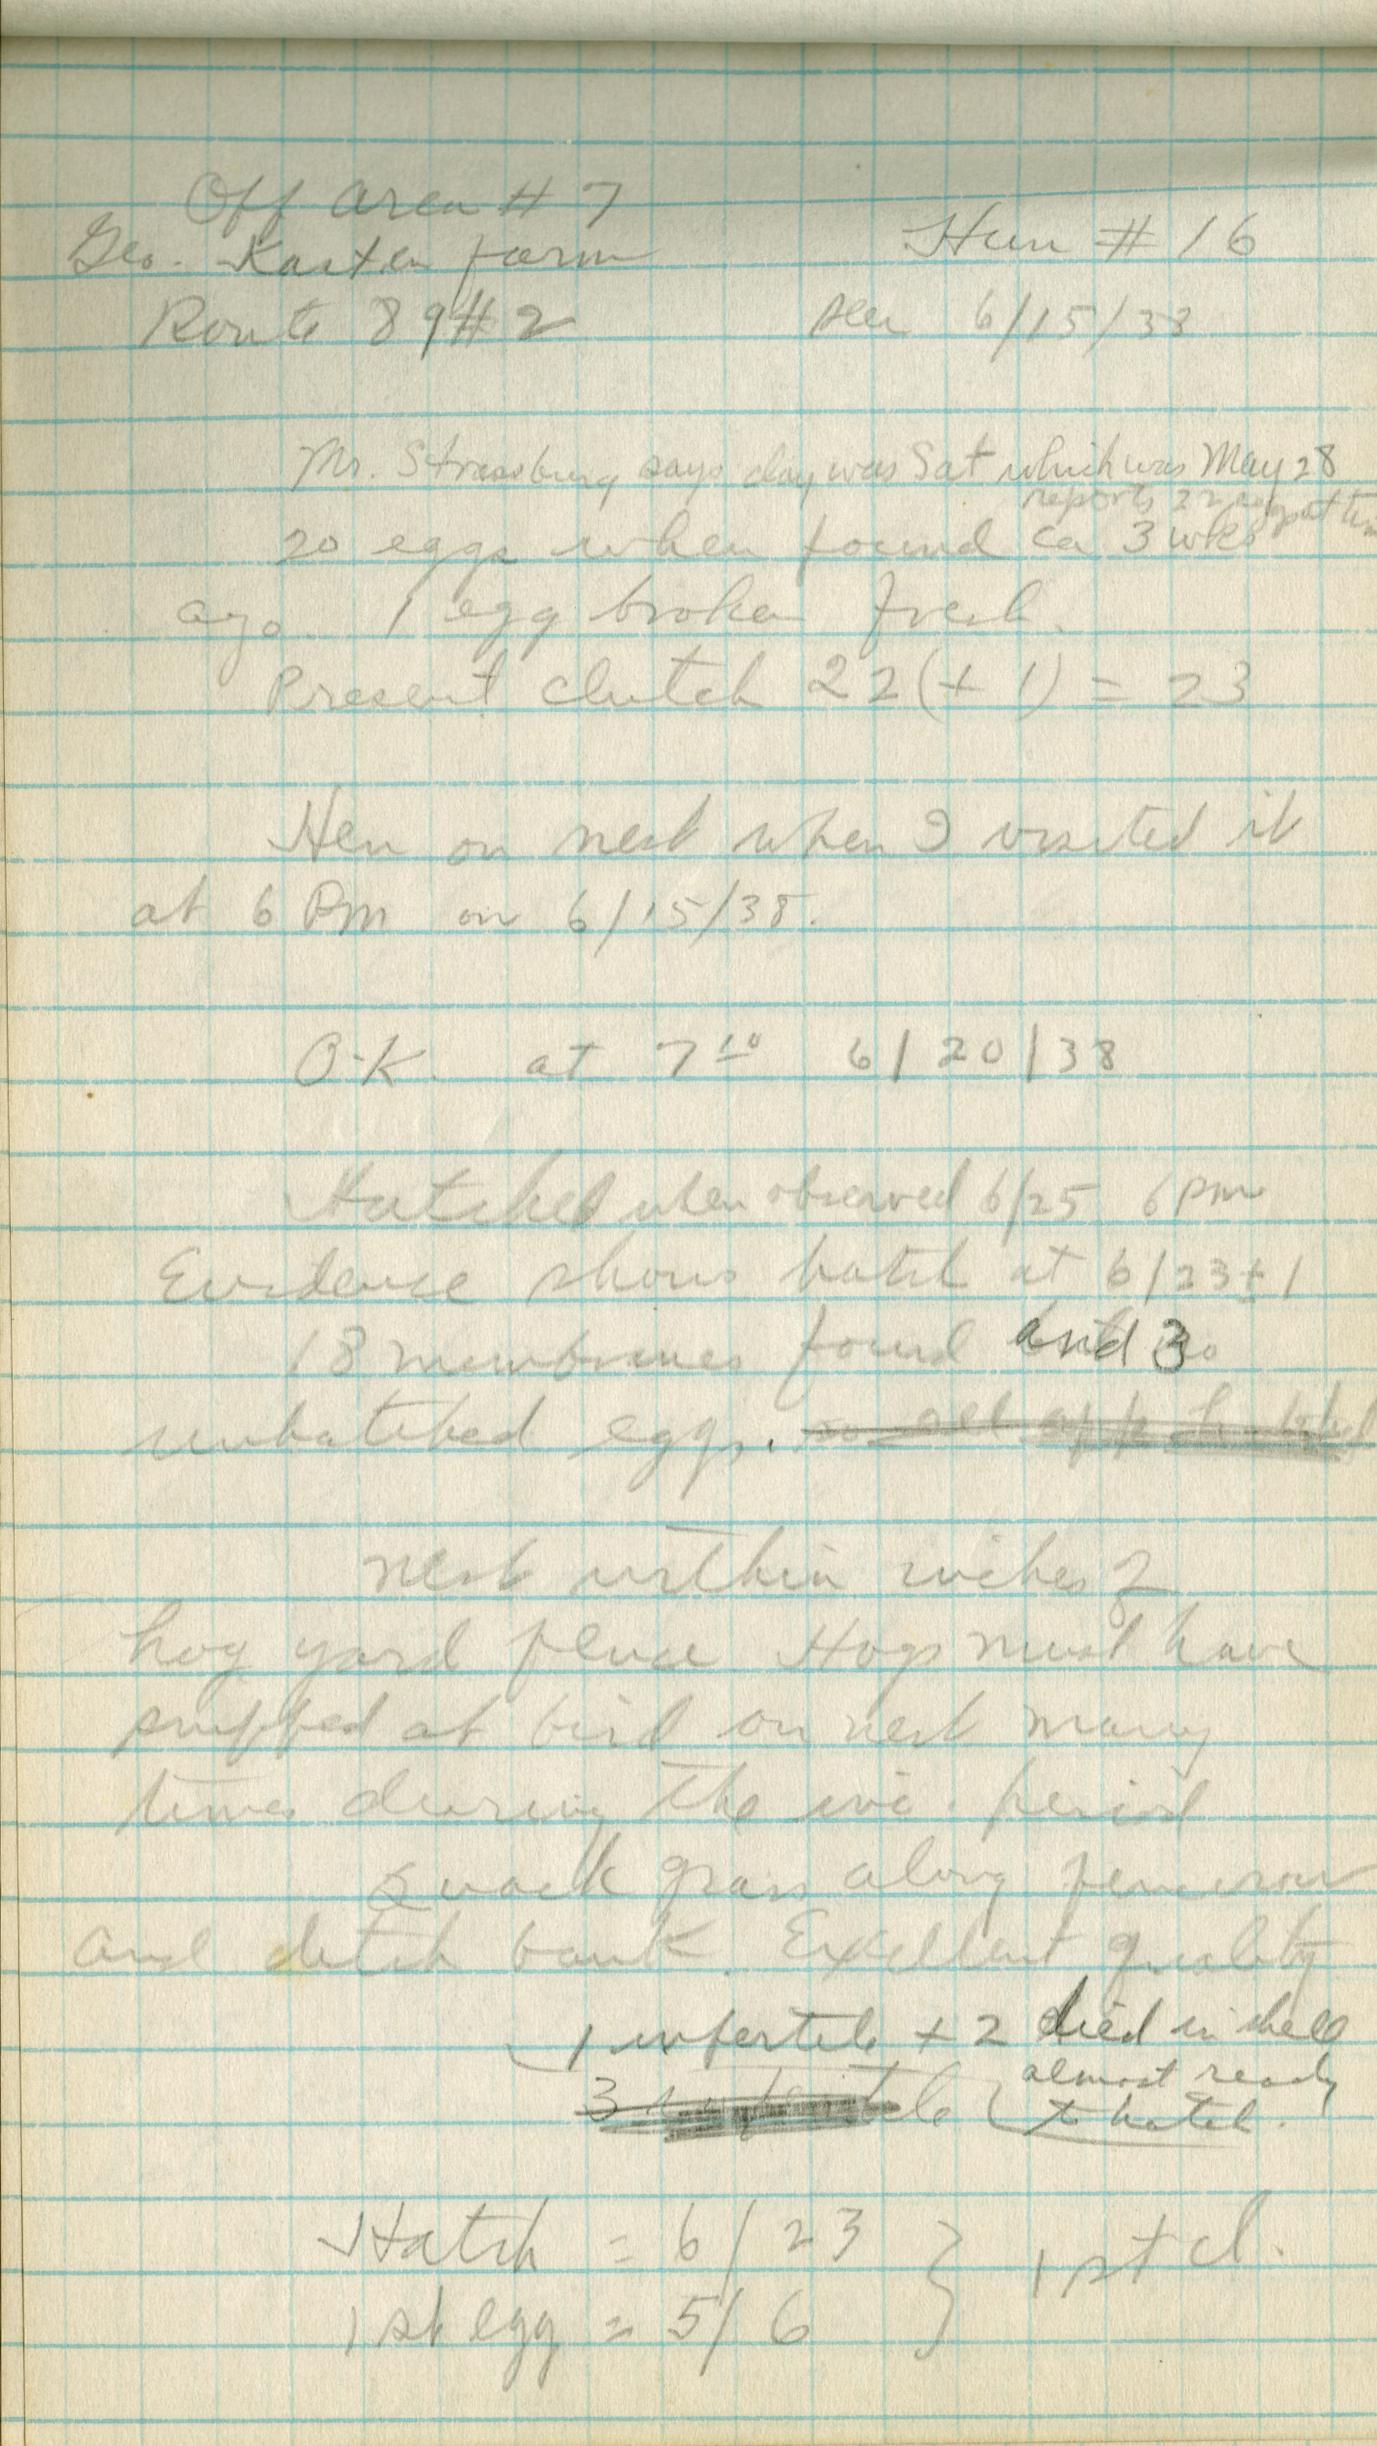 Off area # 7
Geo. Kasten farm
Hun # 16
Route 89 # 2
seen 6/15/38
Mr. Strassburg says day was Sat which was May 28
reports 22 eggs at time
20 eggs when found ca 3 wks
ago. 1 egg broken fresh.
Present clutch 22 (+ 1) = 23
Hen on nest when I visited it
at 6 Pm on 6/15/38.
O.K. at 7 10 6/20/38
Hatched when observed 6/25 6 pm
Evidence shows hatch at 6/23 ± 1
18 membranes found and 3
unhatched eggs. so all hatched
Nest within inches of
hog yard fence Hogs must have
sniffed at bird on nest many
times during the inc. period
Quack grass along fencerow
and ditch bank. Excellent quality
1 infertile + 2 died in shell
almost ready
3 infertile
to hatch.
Hatch = 6/23
1st egg = 5/6
} 1st cl.